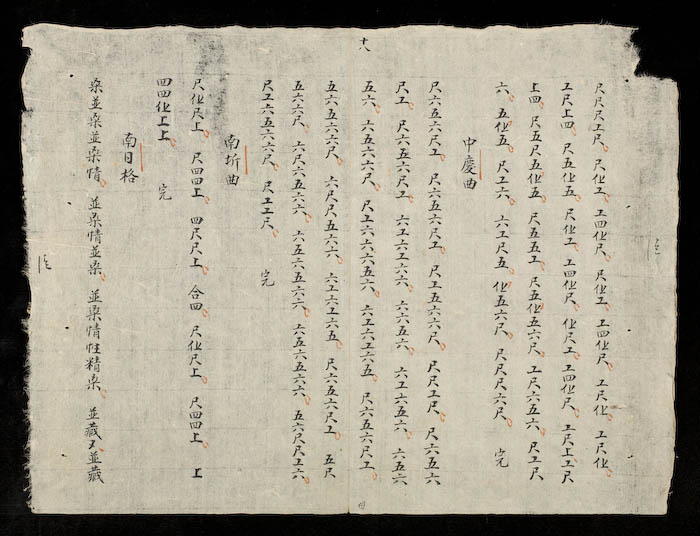 十八
尺尺尺工尺 尺化工 工四化尺 尺化工 工四化尺 工尺化 工尺化
工尺上四 尺五化五 尺化工 工四化尺 化尺工 工四化尺 工尺上工尺
上四 尺五尺五化五 尺五五工 尺五化五六尺 工尺六五六 尺工尺
六 五化五 尺工六 六工尺五 化五六尺 尺尺尺六尺 完
中慶曲
尺六五六尺工 尺六五六尺工 尺工五六六尺 尺尺工尺 尺六五六
尺工 尺六五六尺工 六工六工六六 六六五六 六工六五六 六五六
五六 六五六六尺 尺工六六六五六 六工六工六五 尺六五六尺工
五六五六六尺 六尺尺五六六 六工六工六五 尺六五六尺工 五尺
五六六尺 六尺六五六六 六五六五六六 六五六五六六 五六尺尺工六
尺工六五六六尺 尺工工尺 完
南圻曲
尺化尺上 尺四四上 四尺尺上 合四 尺化尺上 尺四四上 上
四四化上上 完
南日格
桒並桒並桒情 並桒情並桒 並桒情性精桒 並藏又並藏